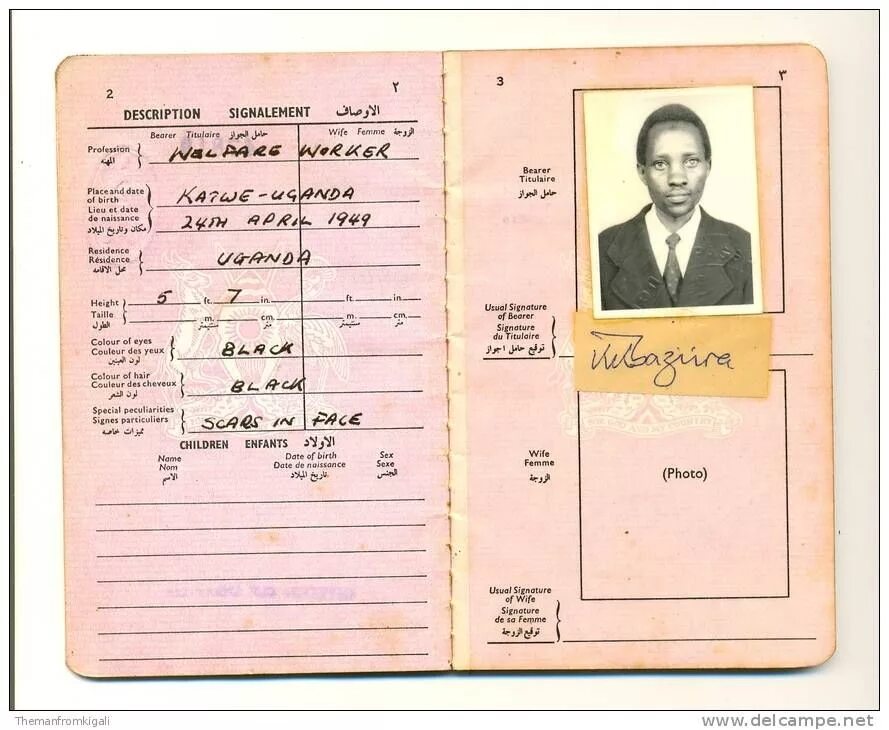 2 ٢
DESCRIPTION SIGNALEMENT الاوصاف
Bearer Titulaire حامل الجواز Wife Femme الزوجة
Profession WELFARE WORKER
المهنه
Place and date
of birth KATWE-UGANDA
Lieu et date
de naissance 24TH APRIL 1949
مكان وتاريخ الميلاد
Residence
Résidence UGANDA
محل الاقامه
Height 5 ft. 7 in. ft. in.
Taille m. cm. m. cm.
الطول سنتيمتر متر سنتيمتر متر
Colour of eyes
Couleur des yeux BLACK
لون العينين
Colour of hair
Couleur des cheveux BLACK
لون الشعر
Special peculiarities
Signes particuliers SCARS IN FACE
مميزات خاصه
CHILDREN ENFANTS الاولاد
Name Date of birth Sex
Nom Date de naissance Sexe
الاسم تاريخ الميلاد الجنس
3 ٣
Bearer
Titulaire
حامل الجواز
Usual Signature
of Bearer
Signature
du Titulaire
توقيع حامل اجواز
Wife
Femme
الزوجة
(Photo)
Usual Signature
of Wife
Signature
de sa Femme
توقيع الزوجة
FOR GOD AND MY COUNTRY
Themanfromkigali www.delcampe.net